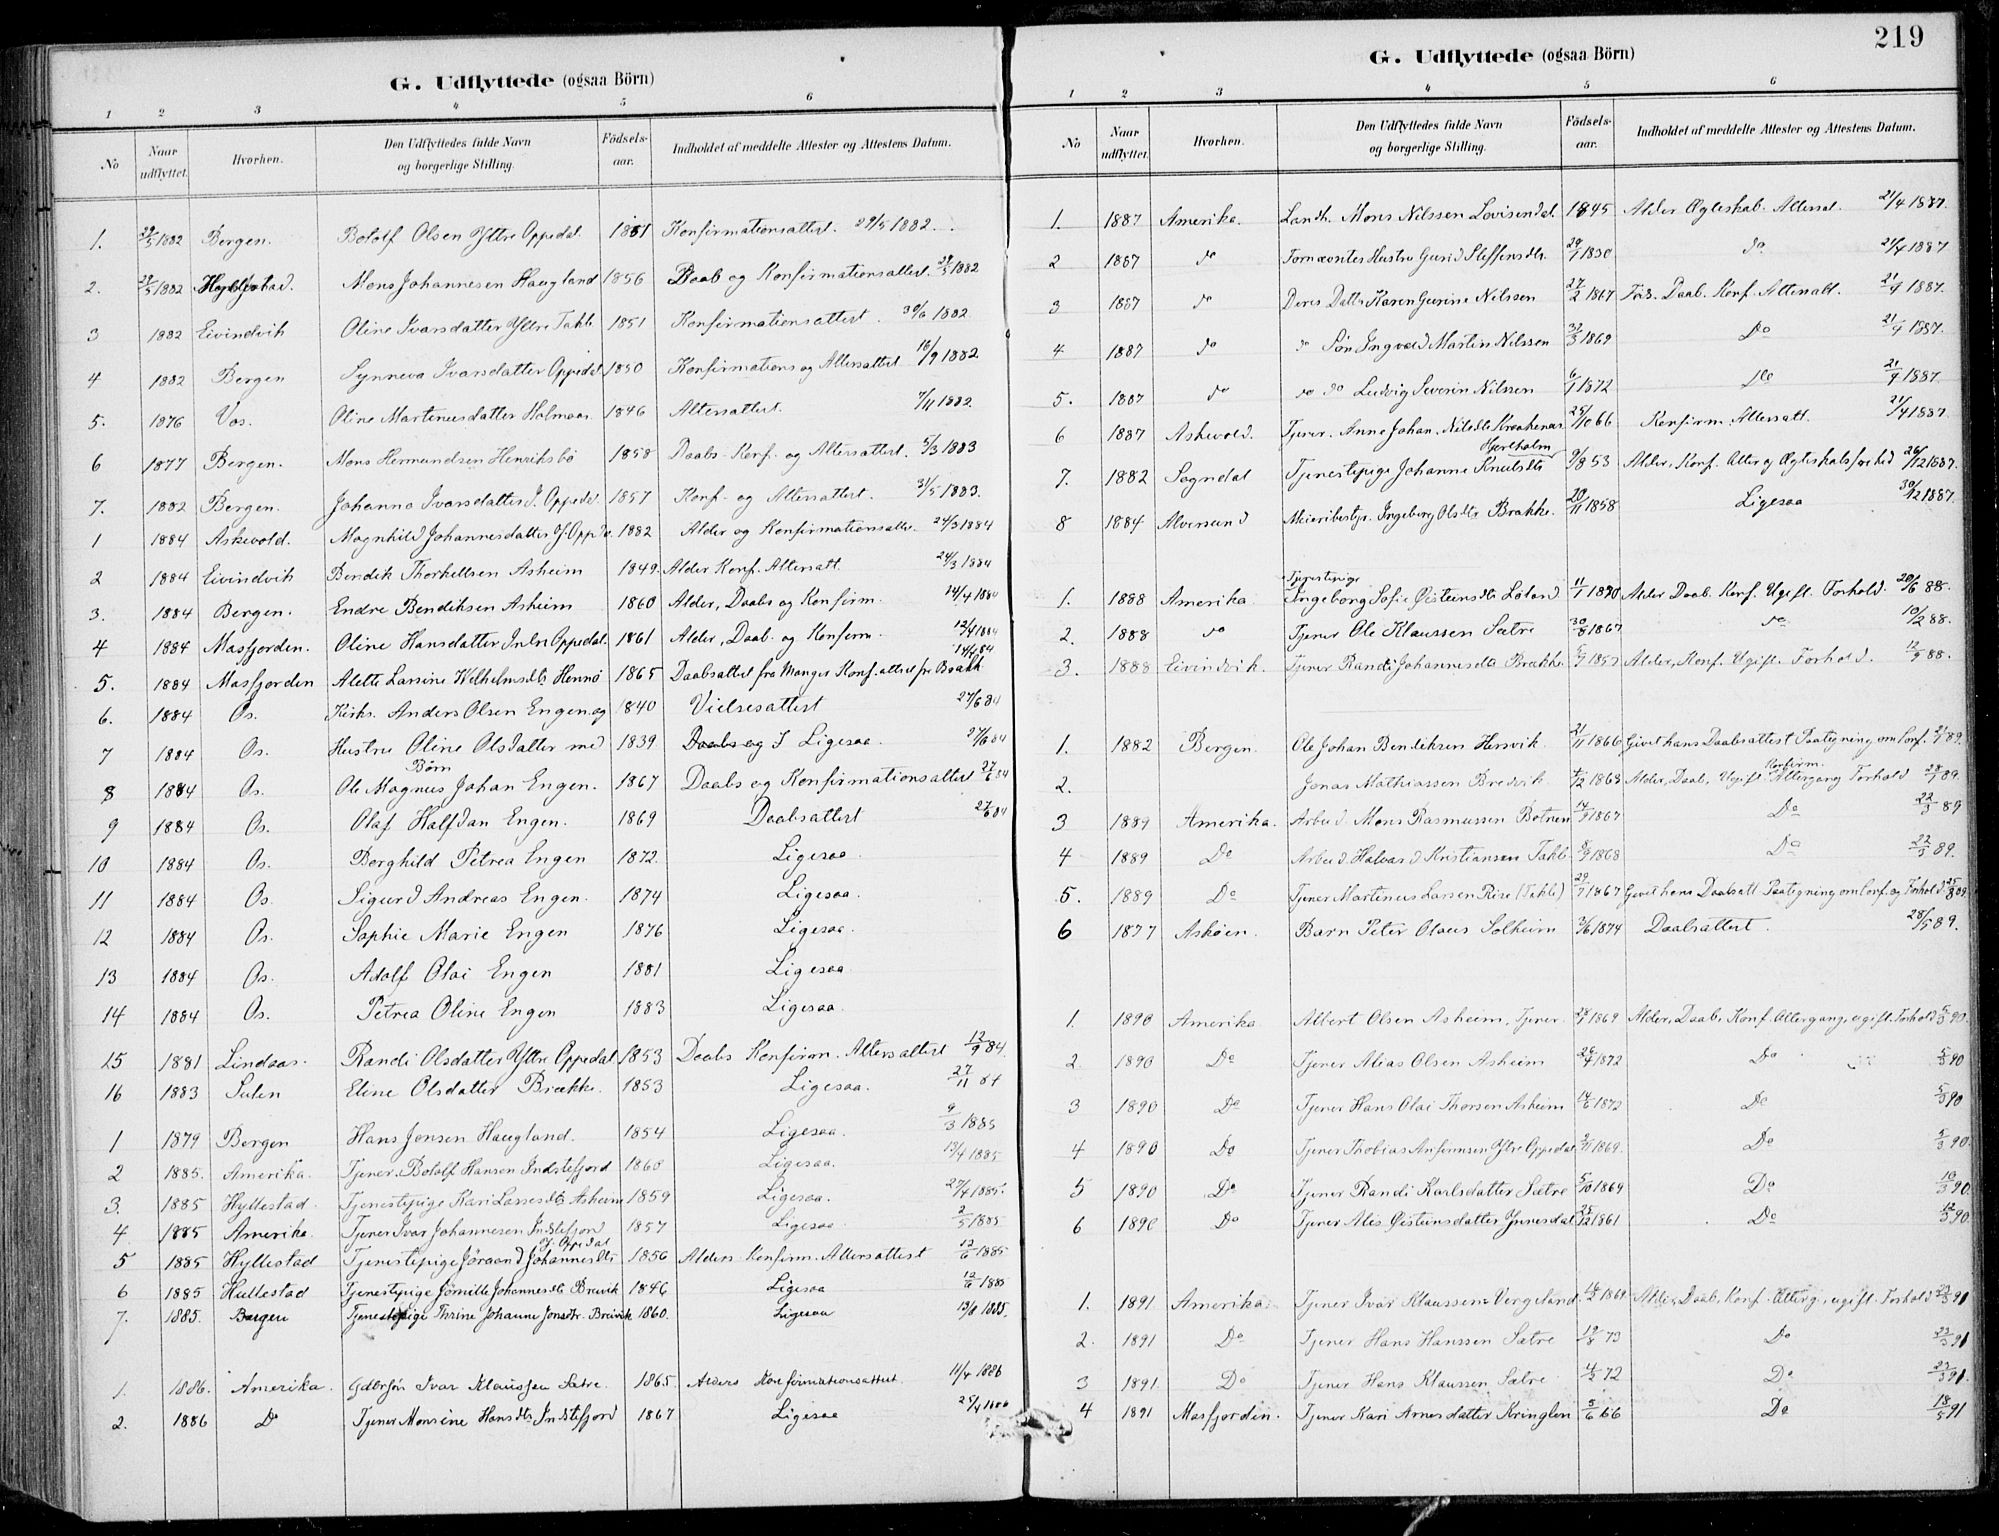 G. Udflyttede (ogsaa Börn)
1 2 3 4 5 6
No Naar udflyttet. Hvorhen. Den Udflyttedes fulde Navn og borgerlige Stilling. Födsels-aar. Indholdet af meddelte Attester og Attestens Datum.
1. 29/5 1882 Bergen. Botolf Olsen Yttre Oppedal 1861 Konfirmationsattest. 29/5 1882.
2. 29/5 1882 Mons Johannesen Haugland 1856 Daab og Konfirmationsattest. 29/5 1882
3 1882 Eivindvik Oline Ivarsdatter Yttre Takle 1851 Konfirmationsattest. 30/6 1882
4 1882 Bergen Synneva Ivarsdatter Oppedal 1850 Konfirmations og Altersattest 16/9 1882
5. 1876 Vos. Oline Martinusdatter Holmaas 1846 Altersattest. 7/11 1882.
6 1877 Bergen. Mons Hermundsen Henriksbø 1858 Daabs- Konf- og Altersattest. 5/3 1883
7. 1882 Bergen. Johanna Ivarsdatter I. Oppedal. 1857 Konf- og Altersattest. 31/5 1883.
1 1884 Askevold. Magnhild Johannesdatter Y. Oppda. 1882 Alder og Konfirmationsatte. 24/3 1884
2 1884 Eivindvik Bendik Thorkellsen Asheim 1849. Alder Konf. Altersatt. 24/3 1884
3. 1884 Bergen. Endre Bendiksen Asheim 1860 Alder, Daabs og Konfirm. 14/4 1884
4 1884 Masfjorden. Oline Hansdatter Indre Oppedal. 1861 Alder, Daab. og Konfirm 12/4 1884
5. 1884 Masfjorden Alette Larsine Wilhelmsdtr Hennø 1865 Daabsattest fra Manger Konf. attest fr. Brække 14/6 84
6. 1884 Os. Kirks. Anders Olsen Engen og 1840 Vielsesattest 27/6 84
7 1884 Os. Hustru Oline Olsdatter med 1839. Daabs og I Ligesaa. 27/6 84
Børn
8 1884 Os. Ole Magnus Johan Engen. 1867 Daabs og Konfirmationsattest 27/6 84
9 1884 Os. Olaf Halfdan Engen. 1869 Daabsattest 27/6 84
10 1884 Os. Borghild Petrea Engen 1872. Ligesaa.
11 1884 Os. Sigurd Andreas Engen. 1874 Ligesaa.
12 1884 Os. Sophie Marie Engen 1876 Ligesaa.
13 1884 Os. Adolf Olai Engen 1881 Ligesaa
14 1884 Os. Petrea Oline Engen 1883 Ligesaa.
15 1881 Lindaas. Randi Olsdatter Yttre Oppedal 1853 Daabs Konfirm. Altersattest 12/9 84.
16 1883 Sulen Elene Olsdatter Brække. 1853 Ligesaa. 27/11 84
1 1879 Bergen Hans Jensen Haugland. 1854 Ligesaa. 9/3 1885
2 1885. Amerika. Tjener. Botolf Hansen Indstefjord 1860 Ligesaa. 13/4 1885
3. 1885 Hyllestad. Tjenestepige Kari Lassesdtr Asheim 1859 Ligesaa. 27/4 1885.
4 1885 Amerika Tjener Ivar Johannesen Indstefjord 1857 Ligesaa 2/5 1885
Y. Oppedal
5 1885 Hyllestad Tjenestepige Jøraand Johannesdtr 1856 Alders Konfirm. Altersattest 12/6 1885
6 1885 Hullestad Tjenestepige Jørnille Johannesdtr Brevik 1846 Ligesaa 12/6 1885
7. 1885. Bergen Tjenestepige Thrine Johanne Jonsdr. Breivik 1860. Ligesaa 13/8 1885.
1. 1886. Amerika. Gdbrsøn Ivar Klaussen Sætre. 1865. Alders Konfirmationsattest. 11/4 1886
2. 1886 Do Tjener Monsine Hansdtr Indstefjord 1867 Ligesaa 25/4 1886
219
G. Udflyttede (ogsaa Börn)
1 2 3 4 5 6
No Naar udflyttet. Hvorhen. Den Udflyttedes fulde Navn og borgerlige Stilling. Födsels-aar. Indholdet af meddelte Attester og Attestens Datum.
1. 1887 Amerika. Landh. Mons Nilssen Lovisendal. 1845 Alder Ægteskab. Attersat. 21/4 1887.
2 1887 do Fornævntes Hustru Gurid Steffensdtr. 29/7 1830 do 21/4 1887
3 1887 do Deres Datter Karen Gurine Nilssen 27/2 1867 Føds. Daab. Konf. Altersatt. 21/4 1887.
4 1887 do do Søn Ingvald Martin Nilssen 31/3 1869 Do 21/4 1887.
5. 1887 do do do Ludvig Severin Nilssen 6/1 1872 Do 21/4 1887.
6 1887 Askevold. Tjener. Anne Johan. Nilsdtr Kraakenes 25/10 66 Konfirm. Altersatt. 21/4 1887.
Hjertholm
7. 1882 Sogndal Tjenestepige Johanne Knutsdtr 9/8 53 Alder, Konf. Alter og Ægteskabsfrehed 26/12 1887.
8 1884 Alversund Meieribestyr. Ingeborg Olsdtr Brække. 20/11 1858 Ligesaa 30/12 1887.
Tjenestepige
1. 1888 Amerika. Ingeborg Sofie Øisteinsdtr Løland 11/1 1870 Alder Daab. Konf. Ugift. Forhold. 20/6 88.
2. 1888 do Tjener Ole Klaussen Sætre 30/8 1867 do 10/2 88.
3. 1888 Eivindvik. Tjener Randi Johannesdtr Brække. 5/7 1857 Alder, Konf. Ugift. Forhold. 12/9 88.
1. 1882 Bergen. Ole Johan Bendiksen Hersvik. 21/11 1866 Givet hans Daabsattest Paategning om Conf. 21/1 89.
Konfirm.
2. Jonas Mathiassen Bredvik 4/12 1868 Alder, Daab, Ugift. Altergang Forhold 28/1 89.
3 1889 Amerika. Arbeid. Mons Rasmussen Botnen 14/9 1867 Do 22/3 89
4 1889 Do Arbeid. Halvard Kristiansen Takle 8/9 1868 Do 22/3 89.
5. 1889 Do Tjener Martenus Larsen Rise (Takle) 29/7 1867 Givet hans Daabsatt. Paategning om Conf. og Forhold. 25/3 89.
6 1877 Askøen. Barn Peter Olaus Solheim 3/6 1874 Daabsattest. 28/5 89.
1. 1890 Amerika. Albert Olsen Asheim, Tjener. 28/1 1869 Alder, Daab, Konf. Altergang, ugift. Forhold 5/3 90.
2. 1890 Do Tjener Alias Olsen Asheim 26/4 1872 Do 5/3 90
3 1890 Do Tjener Hans Olai Thorsen Asheim 14/6 1872 Do 5/3 90
4 1890 Do Tjener Thobias Anfinnsen Yttre Oppedal 3/11 1869. Do 5/3 90.
5 1890 Do Tjener Randi Karlsdatter Sætre 5/10 1869 Do 10/3 90.
6 1890 Do Tjener Alis Øisteinsdatter Ynnesdal 25/12 1861 Do 12/3 90.
1. 1891 Amerika Tjener Ivar Klaussen Vergeland 16/2 1869 Alder, Daab, Konf. Alterg., ugift. Forhold 23/3 91
2. 1891 Do Tjener Hans Hanssen Sætre 19/8 73 Do 23/3 91
3 1891 Do Tjener Hans Klaussen Sætre 4/5 72 Do 23/3 91.
4 1891 Masfjorden. Tjener Kari Arnesdatter Kringlen 5/6 66 Do 13/5 91